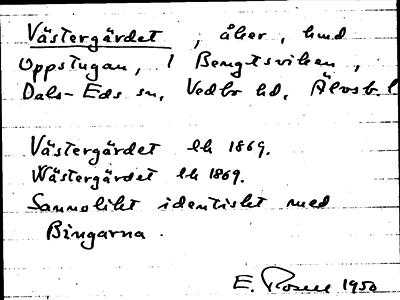 Västergärdet, åker, hmd
Oppstugan, 1 Bengtsviken,
Dals-Eds sn, Vedbo hd, Älvsb. l
Västergärdet lh 1869.
Wästergärdet lh 1869.
Sannolikt identiskt med
Bingarna.
E. Rosell 1950